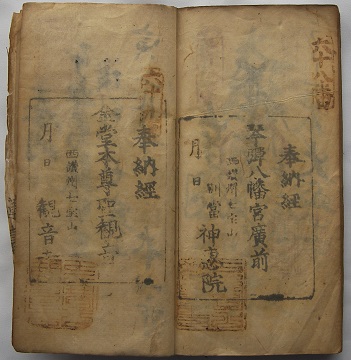 六十八番
奉納経
琴弾八幡宮廣前
西讃州七宝山
別當 神恵院
月 日
奉納経
金堂本尊聖観音
西讃州七宝山
観音
月 日